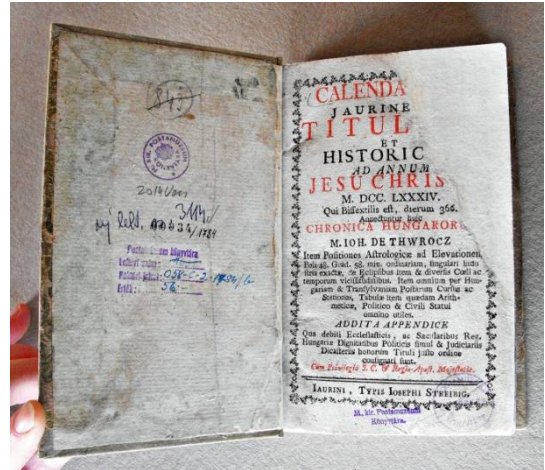 (843)
2014/001
3114.
új lelt.
Postamúzeum könyvtára
CALENDA
JAURINE
TITUL
ET
HISTORIC
AD ANNUM
JESU CHRIS
M. DCC. LXXXIV.
Qui Bissextilis est, dierum 366.
Annectuntur huic
CHRONICA HUNGAROR
M. IOH. DE THWROCZ
Item Positiones Astrologicæ ad Elevationem
Poli 48. Grad. 58. min. ordinariam, singulari indu
stria exactæ, de Eclipsibus item & diversis Cœli ac
temporum vicissitudinibus. Item omnium per Hun-
gariam & Transylvaniam Postarum Cursus ac
Stationes, Tabulæ item quædam Arith-
meticæ, Politico & Civili Statui
omnino utiles.
ADDITA APPENDICE
Qua debiti Ecclesiasticis, ac Sæcularibus Reg.
Hungariæ Dignitatibus Politicis simul & Judiciariis
Dicasteriis honorum Tituli justo ordine
consignati sunt.
Cum Privilegio S. C. & Regio-Apost. Majestatis.
IAURINI, TYPIS IOSEPHI STREIBIG.
M. kir. Postamúzeum
Könyvtára.